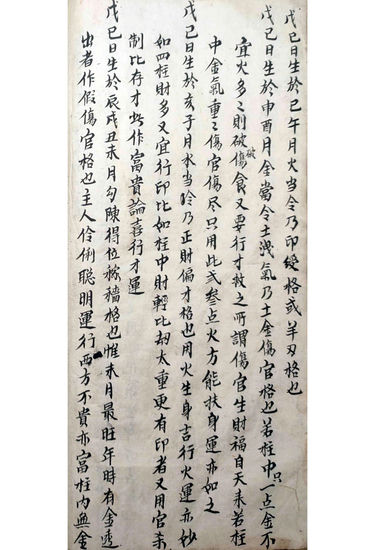 戊己日生於巳午月火当令乃印綬格或羊刃格也
戊己日生於申酉月金當令土洩氣乃土金傷官格也若柱中只一点金不
宜火多之則破傷食又要行才救之所謂傷官生財福自天來若柱
中金氣重之傷官傷尽只用此弍叁点火方能扶身運亦如之
戊己日生於亥子月水当令乃正財偏才格也用火生身吉行火運亦妙
如四柱財多又宜行印比如柱中財輕比刼太重更有印者又用官杀
制比存才此作富貴論喜行才運
戊己日生於辰戌丑未月勾陳得位稼穡格也惟未月最旺年時有金透
出者作假傷官格也主人伶俐聪明運行西方不貴亦富柱内無金